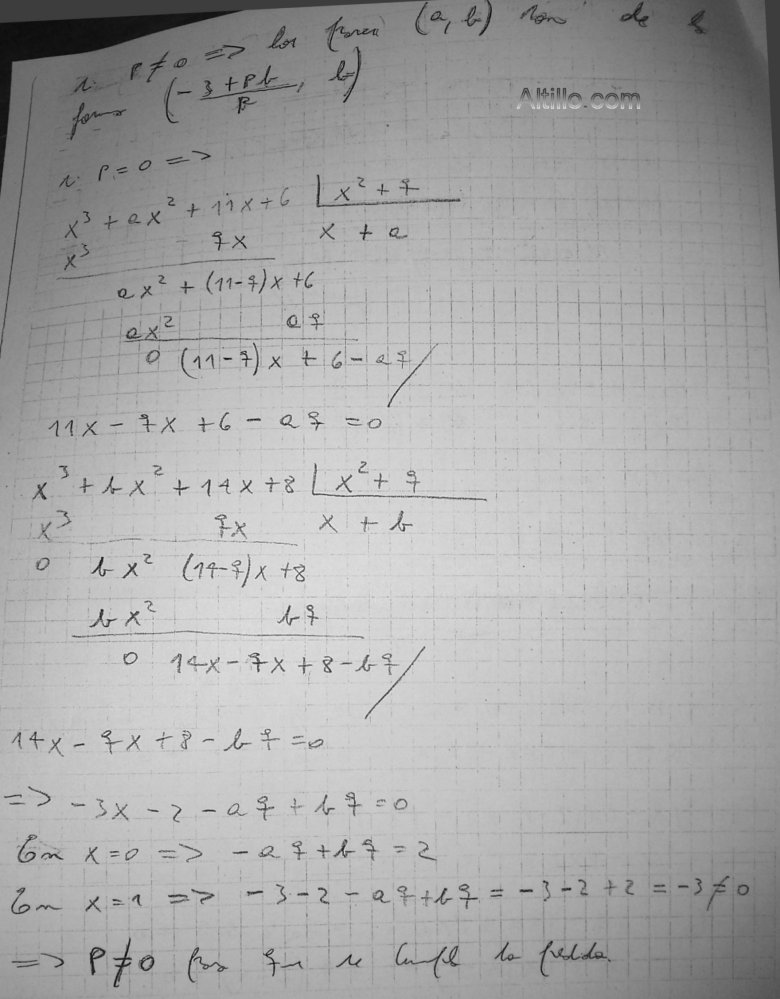 si P ≠ 0 => los pares (a, b) son de la
forma (- 3 + Pb / P, b)
Altillo.com
si P = 0 =>
x³ + ax² + 11x + 6 | x² + q
x³ qx x + a
ax² + (11-q)x + 6
ax² aq
0 (11-q)x + 6 - aq
11x - qx + 6 - aq = 0
x³ + bx² + 14x + 8 | x² + q
x³ qx x + b
0 bx² (14-q)x + 8
bx² bq
0 14x - qx + 8 - bq
14x - qx + 8 - bq = 0
=> -3x - 2 - aq + bq = 0
En x = 0 => -aq + bq = 2
En x = 1 => -3 - 2 - aq + bq = -3 - 2 + 2 = -3 ≠ 0
=> P ≠ 0 para que se cumpla lo pedido.